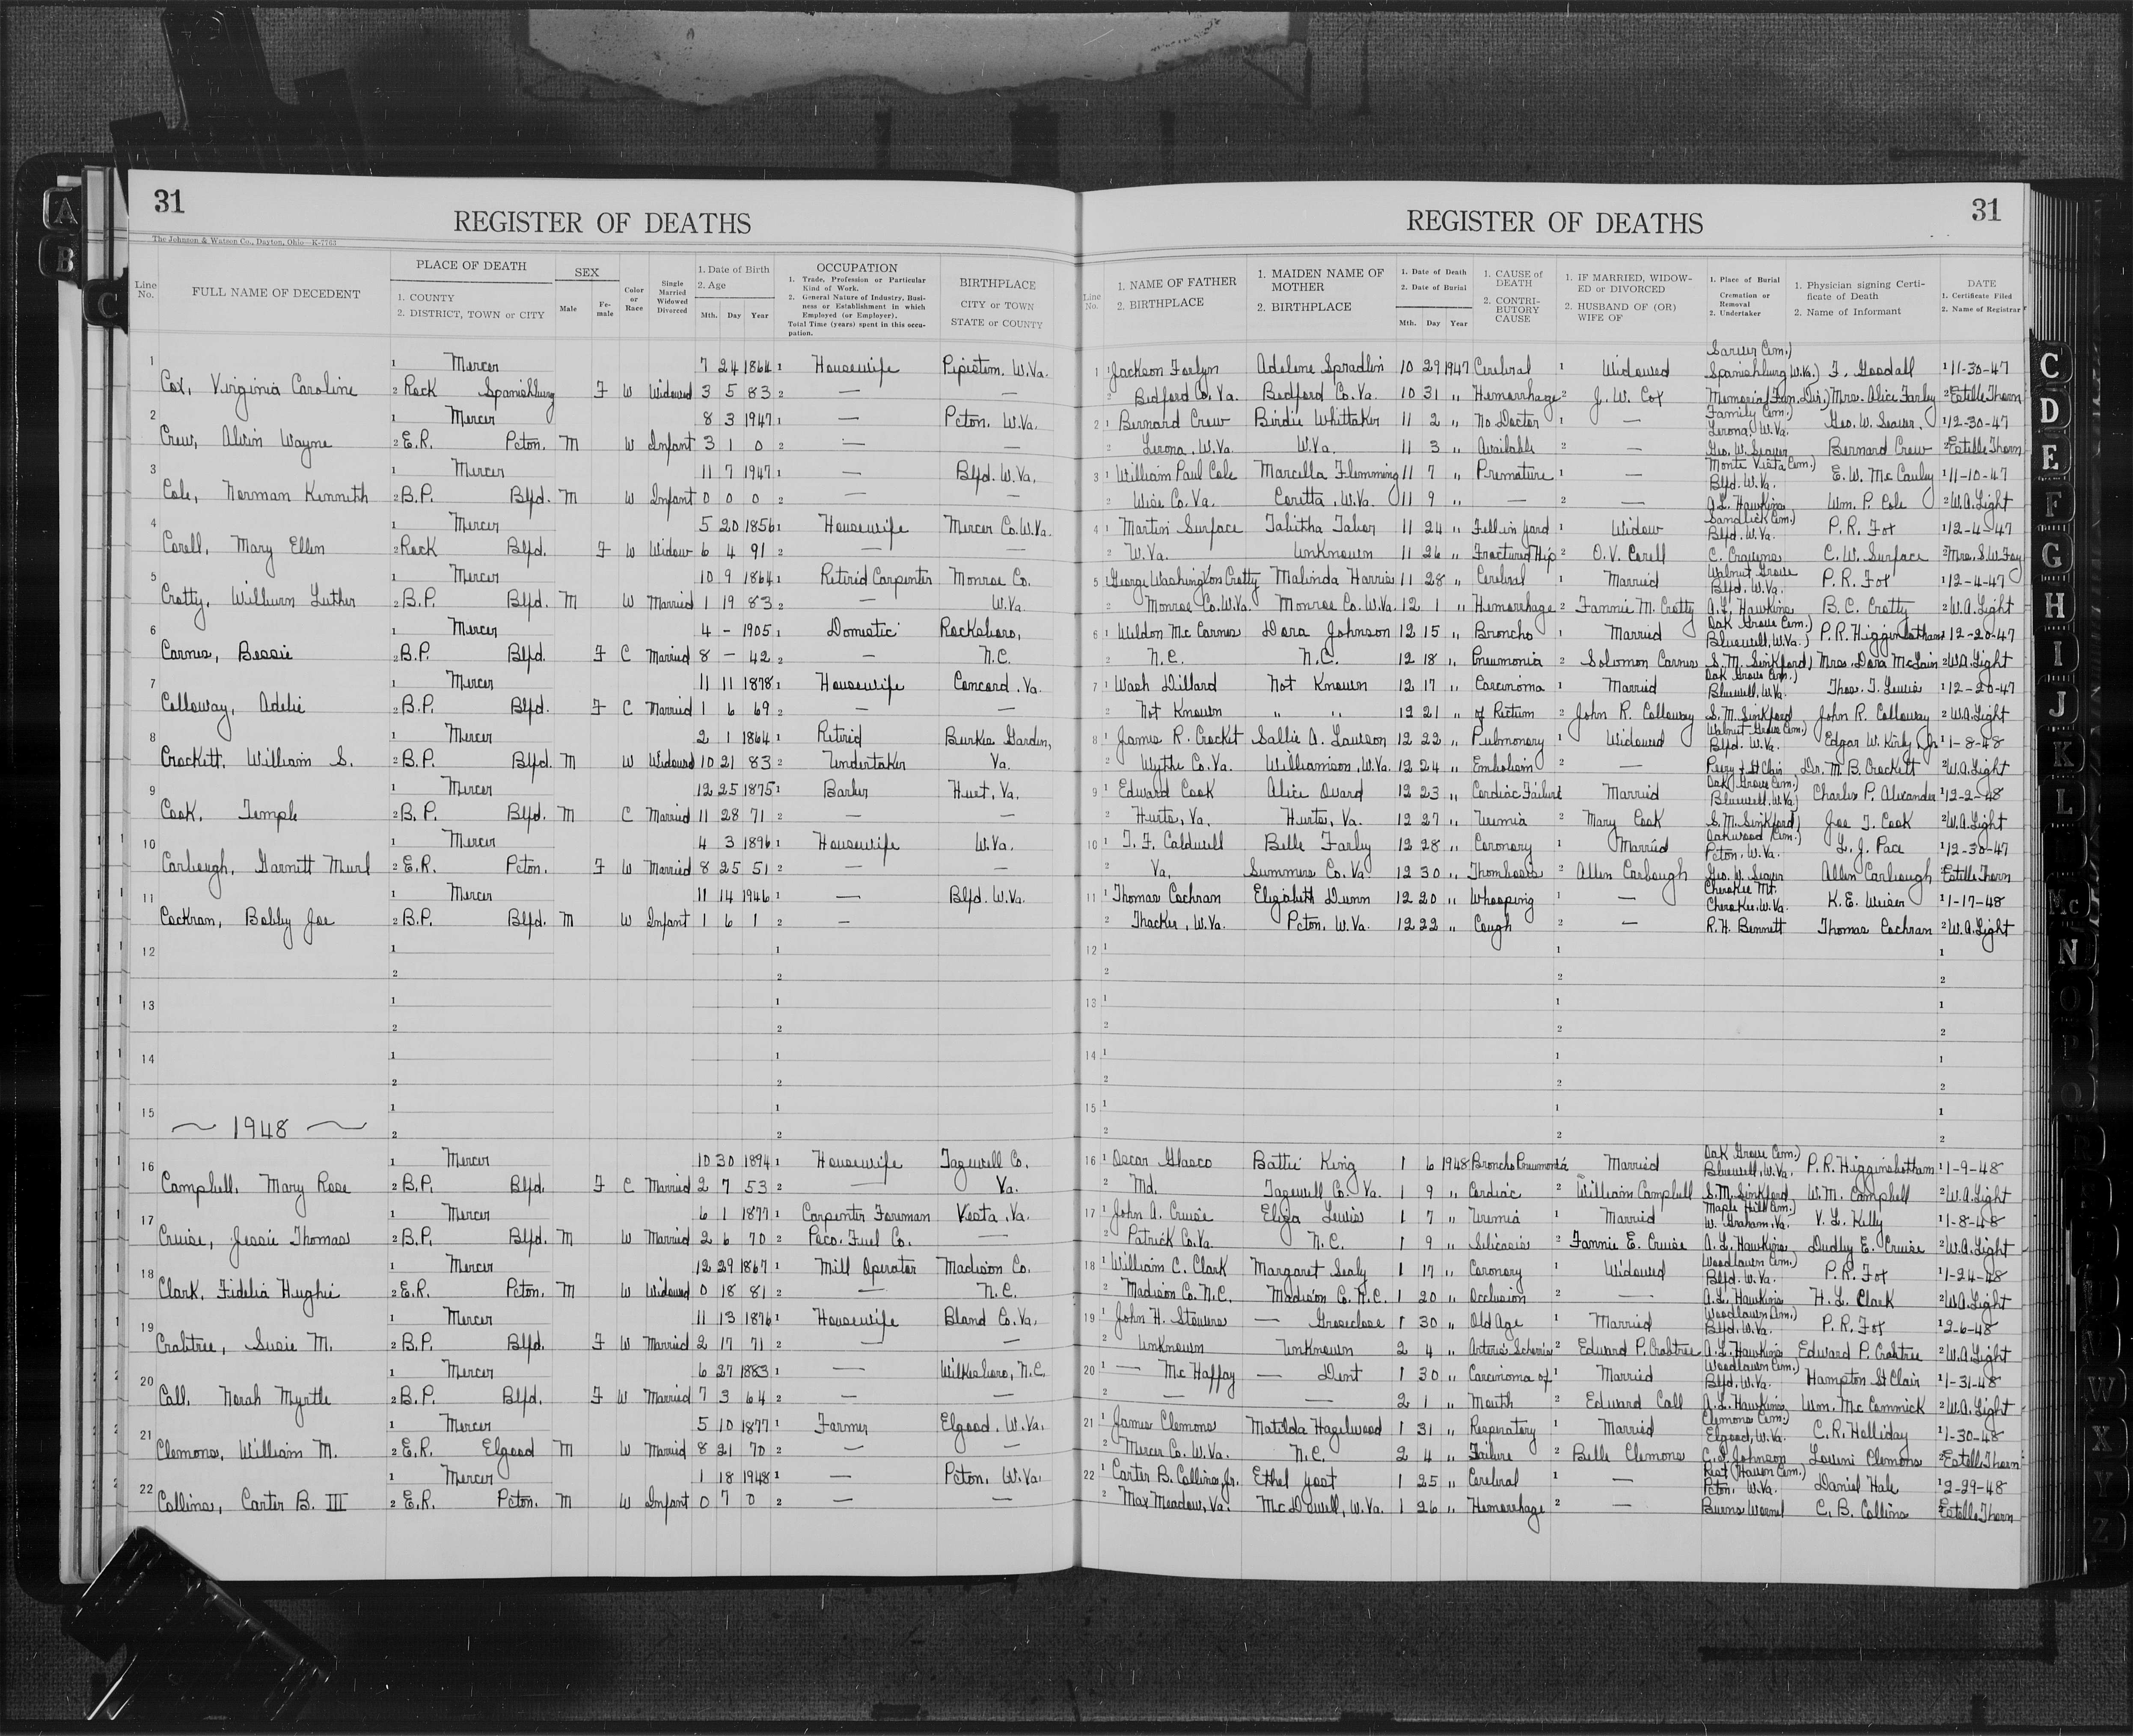 31
REGISTER OF DEATHS
The Johnson & Watson Co., Dayton, Ohio—K-7763
Line No.
FULL NAME OF DECEDENT
PLACE OF DEATH
1. COUNTY
2. DISTRICT, TOWN or CITY
SEX
Male
Fe-male
Color or Race
Single Married Widowed Divorced
1. Date of Birth
2. Age
Mth. Day Year
OCCUPATION
1. Trade, Profession or Particular Kind of Work.
2. General Nature of Industry, Business or Establishment in which Employed (or Employer).
Total Time (years) spent in this occupation.
BIRTHPLACE
CITY or TOWN
STATE or COUNTY
1 1 Mercer 7 24 1864 1 Housewife Pipistem. W.Va.
Cox, Virginia Caroline 2 Rock Spanishburg F W Widowed 3 5 83 2 — —
2 1 Mercer 8 3 1947 1 — Pcton, W.Va.
Crew, Alvin Wayne 2 E.R. Pcton. M W Infant 3 1 0 2 — —
3 1 Mercer 11 7 1947 1 — Blfd. W.Va.
Cole, Norman Kenneth 2 B.P. Blfd. M W Infant 0 0 0 2 — —
4 1 Mercer 5 20 1856 1 Housewife Mercer Co. W.Va.
Corell, Mary Ellen 2 Rock Blfd. F W Widow 6 4 91 2 — —
5 1 Mercer 10 9 1864 1 Retired Carpenter Monroe Co.
Crotty, Wilburn Luther 2 B.P. Blfd. M W Married 1 19 83 2 — W.Va.
6 1 Mercer 4 – 1905 1 Domestic Rocksboro,
Carnes, Bessie 2 B.P. Blfd. F C Married 8 — 42 2 — N.C.
7 1 Mercer 11 11 1878 1 Housewife Concord, Va.
Colloway, Adelie 2 B.P. Blfd. F C Married 1 6 69 2 — —
8 1 Mercer 2 1 1864 1 Retired Burkes Garden,
Crockett, William S. 2 B.P. Blfd. M W Widowed 10 21 83 2 Undertaker Va.
9 1 Mercer 12 25 1875 1 Barber Hurt, Va.
Cook, Temple 2 B.P. Blfd. M C Married 11 28 71 2 — —
10 1 Mercer 4 3 1896 1 Housewife W.Va.
Carbough, Garnett Murl 2 E.R. Pcton. F W Married 8 25 51 2 — —
11 1 Mercer 11 14 1946 1 — Blfd. W.Va.
Cockran, Bobby Joe 2 B.P. Blfd. M W Infant 1 6 1 2 —
12 1 1
2 2
13 1 1
2 2
14 1 1
2 2
15 1 1
~ 1948 ~ 2 2
16 1 Mercer 10 30 1894 1 Housewife Tazewell Co.
Campbell, Mary Rose 2 B.P. Blfd. F C Married 2 7 53 2 — Va.
17 1 Mercer 6 1 1877 1 Carpenter Foreman Vesta, Va.
Cruise, Jessie Thomas 2 B.P. Blfd. M W Married 2 6 70 2 Poco. Fuel Co. —
18 1 Mercer 12 29 1867 1 Mill Operator Madison Co.
Clark, Fidelia Hughie 2 E.R. Pcton, M W Widowed 0 18 81 2 — N.C.
19 1 Mercer 11 13 1876 1 Housewife Bland Co. Va.
Crabtree, Susie M. 2 B.P. Blfd. F W Married 2 17 71 2 — —
20 1 Mercer 6 27 1883 1 — Wilkesboro, N.C.
Call, Norah Myrtle 2 B.P. Blfd. F W Married 7 3 64 2 — —
21 1 Mercer 5 10 1877 1 Farmer Elgood, W.Va.
Clemons, William M. 2 E.R. Elgood M W Married 8 21 70 2 — —
22 1 Mercer 1 18 1948 1 — Pcton, W.Va.
Collins, Carter B. III 2 E.R. Pcton. M W Infant 0 7 0 2 — —
REGISTER OF DEATHS
31
Line No.
1. NAME OF FATHER
2. BIRTHPLACE
1. MAIDEN NAME OF MOTHER
2. BIRTHPLACE
1. Date of Death
2. Date of Burial
Mth. Day Year
1. CAUSE of DEATH
2. CONTRIBUTORY CAUSE
1. IF MARRIED, WIDOWED or DIVORCED
2. HUSBAND OF (OR) WIFE OF
1. Place of Burial Cremation or Removal
2. Undertaker
1. Physician signing Certificate of Death
2. Name of Informant
DATE
1. Certificate Filed
2. Name of Registrar
1 1 Jackson Farlyn Adeline Spradlin 10 29 1947 Cerebral 1 Widowed Spanishburg W.Va.) F. Goodall 1 11-30-47
2 Bedford Co. Va. Bedford Co. Va. 10 31 " Hemorrhage 2 J. W. Cox Memorial Fun. Dir.) Mrs. Alice Farley 2 Estelle Thorn
2 1 Bernard Crew Birdie Whittaker 11 2 " No Doctor 1 — Family Cem.) Lerona, W.Va. Geo. W. Seaver. 1 12-30-47
2 Lerona, W.Va. W.Va. 11 3 " Available 2 — Geo. W. Seaver Bernard Crew 2 Estelle Thorn
3 1 William Paul Cole Marcella Flemming 11 7 " Premature 1 — Monte Vista Cem.) Blfd. W.Va. E. W. McCauley 1 11-10-47
2 Wise Co. Va. Coretta, W.Va. 11 9 " — 2 — A.L. Hawkins Wm. P. Cole 2 W.A. Light
4 1 Martin Surface Tabitha Tabor 11 24 " Fell in yard 1 Widow Sandlick Cem.) Blfd. W.Va. P. R. Fox 1 12-4-47
2 W.Va. Unknown 11 26 " Fractured Hip 2 O.V. Corell C. Cravens C. W. Surface 2 Mrs. S.W. Foy
5 1 George Washington Crotty Malinda Harris 11 28 " Cerebral 1 Married Walnut Grove Blfd. W.Va. P. R. Fox 1 12-4-47
2 Monroe Co. W.Va. Monroe Co. W.Va. 12 1 " Hemorrhage 2 Fannie M. Crotty A.L. Hawkins B.C. Crotty 2 W.A. Light
6 1 Weldon McCarnes Dora Johnson 12 15 " Broncho 1 Married Oak Grove Cem.) Bluewell, W.Va.) P.R. Higginbotham 1 12-20-47
2 N.C. N.C. 12 18 " Pneumonia 2 Solomon Carnes S. M. Sinkford) Mrs. Dora McLain 2 W.A. Light
7 1 Wash Dillard Not Known 12 17 " Carcinoma 1 Married Oak Grove Cem.) Bluewell, W.Va. Thos. T. Lewis 1 12-20-47
2 Not Known " " 12 21 " of Rectum 2 John R. Colloway S.M. Sinkford John R. Colloway 2 W.A. Light
8 1 James R. Crocket Sallie A. Lawson 12 22 " Pulmonary 1 Widowed Walnut Grove Cem.) Blfd. W.Va. Edgar W. Kirby, Jr. 1 1-8-48
2 Wythe Co. Va. Williamson, W.Va. 12 24 " Embolism 2 — Perry & St Clair Dr. M. B. Crockett 2 W.A. Light
9 1 Edward Cook Alice Ward 12 23 " Cardiac Failure 1 Married Oak Grove Cem.) Bluewell, W.Va) Charles P. Alexander 1 12-2-48
2 Hurts, Va. Hurts, Va. 12 27 " Uremia 2 Mary Cook S.M. Sinkford) Joe T. Cook 2 W.A. Light
10 1 T. F. Caldwell Belle Farley 12 28 " Coronary 1 Married Oakwood Cem.) Pcton, W.Va. L. J. Pace 1 12-30-47
2 Va. Summers Co. Va 12 30 " Thombosis 2 Allen Carbough Geo. W. Seaver Allen Carbough Estelle Thorn
11 1 Thomas Cochran Elizabeth Dunn 12 20 " Whooping 1 — Cherokee Mt. Cherokee, W.Va. K.E. Weiser 1 1-17-48
2 Thacker, W.Va. Pcton, W.Va. 12 22 " Cough 2 — R.H. Bennett Thomas Cochran 2 W.A. Light
12 1 1 1
2 2 2
13 1 1 1
2 2 2
14 1 1 1
2 2 2
15 1 1 1
2 2 2
16 1 Oscar Glasco Battie King 1 6 1948 Broncho Pneumonia Married Oak Grove Cem.) Bluewell, W.Va. P.R. Higginbotham 1 1-9-48
2 Md. Tazewell Co. Va. 1 9 " Cardiac 2 William Campbell S.M. Sinkford W.M. Campbell 2 W.A. Light
17 1 John A. Cruise Eliza Lewis 1 7 " Uremia 1 Married Maple Hill Cem.) W. Graham, Va. V. L. Kelly 1 1-8-48
2 Patrick Co. Va. N.C. 1 9 " Silicosis 2 Fannie E. Cruise A.L. Hawkins Dudley E. Cruise 2 W.A. Light
18 1 William C. Clark Margaret Sealy 1 17 " Coronary 1 Widowed Woodlawn Cem.) Blfd. W.Va. P.R. Fox 1 1-24-48
2 Madison Co. N.C. Madison Co. N.C. 1 20 " Occlusion 2 — A.L. Hawkins H.L. Clark 2 W.A. Light
19 1 John H. Stowers — Groseclose 1 30 " Old Age 1 Married Woodlawn Cem.) Blfd. W.Va. P.R. Fox 1 2-6-48
2 Unknown Unknown 2 4 " 2 Edward P. Crabtree A.L. Hawkins Edward P. Crabtree 2 W.A. Light
20 1 — McHaffay — Dent 1 30 " Carcinoma of 1 Married Woodlawn Cem.) Blfd. W.Va. Hampton St Clair 1 1-31-48
2 — — 2 1 " Mouth 2 Edward Call A.L. Hawkins Wm. McCommick 2 W.A. Light
21 1 James Clemons Matilda Hazelwood 1 31 " Respiratory 1 Married Clemons Cem.) Elgood, W.Va. C.R. Holliday 1 1-30-48
2 Mercer Co. W.Va. N.C. 2 4 " Failure 2 Belle Clemons C.S. Johnson Clemons 2 Estelle Thorn
22 1 Carter B. Collins, Jr. Ethel Yost 1 25 " Cerebral 1 — Rest Haven Cem.) Pcton, W.Va. Daniel Hale 1 2-29-48
2 Max Meadow, Va. McDowell, W.Va. 1 26 " Hemorrhage 2 — Burns C. B. Collins Estelle Thorn
A
B
C
C
D
E
F
G
H
I
J
K
L
Mc
N
O
Q
R
W
X
Y
Z